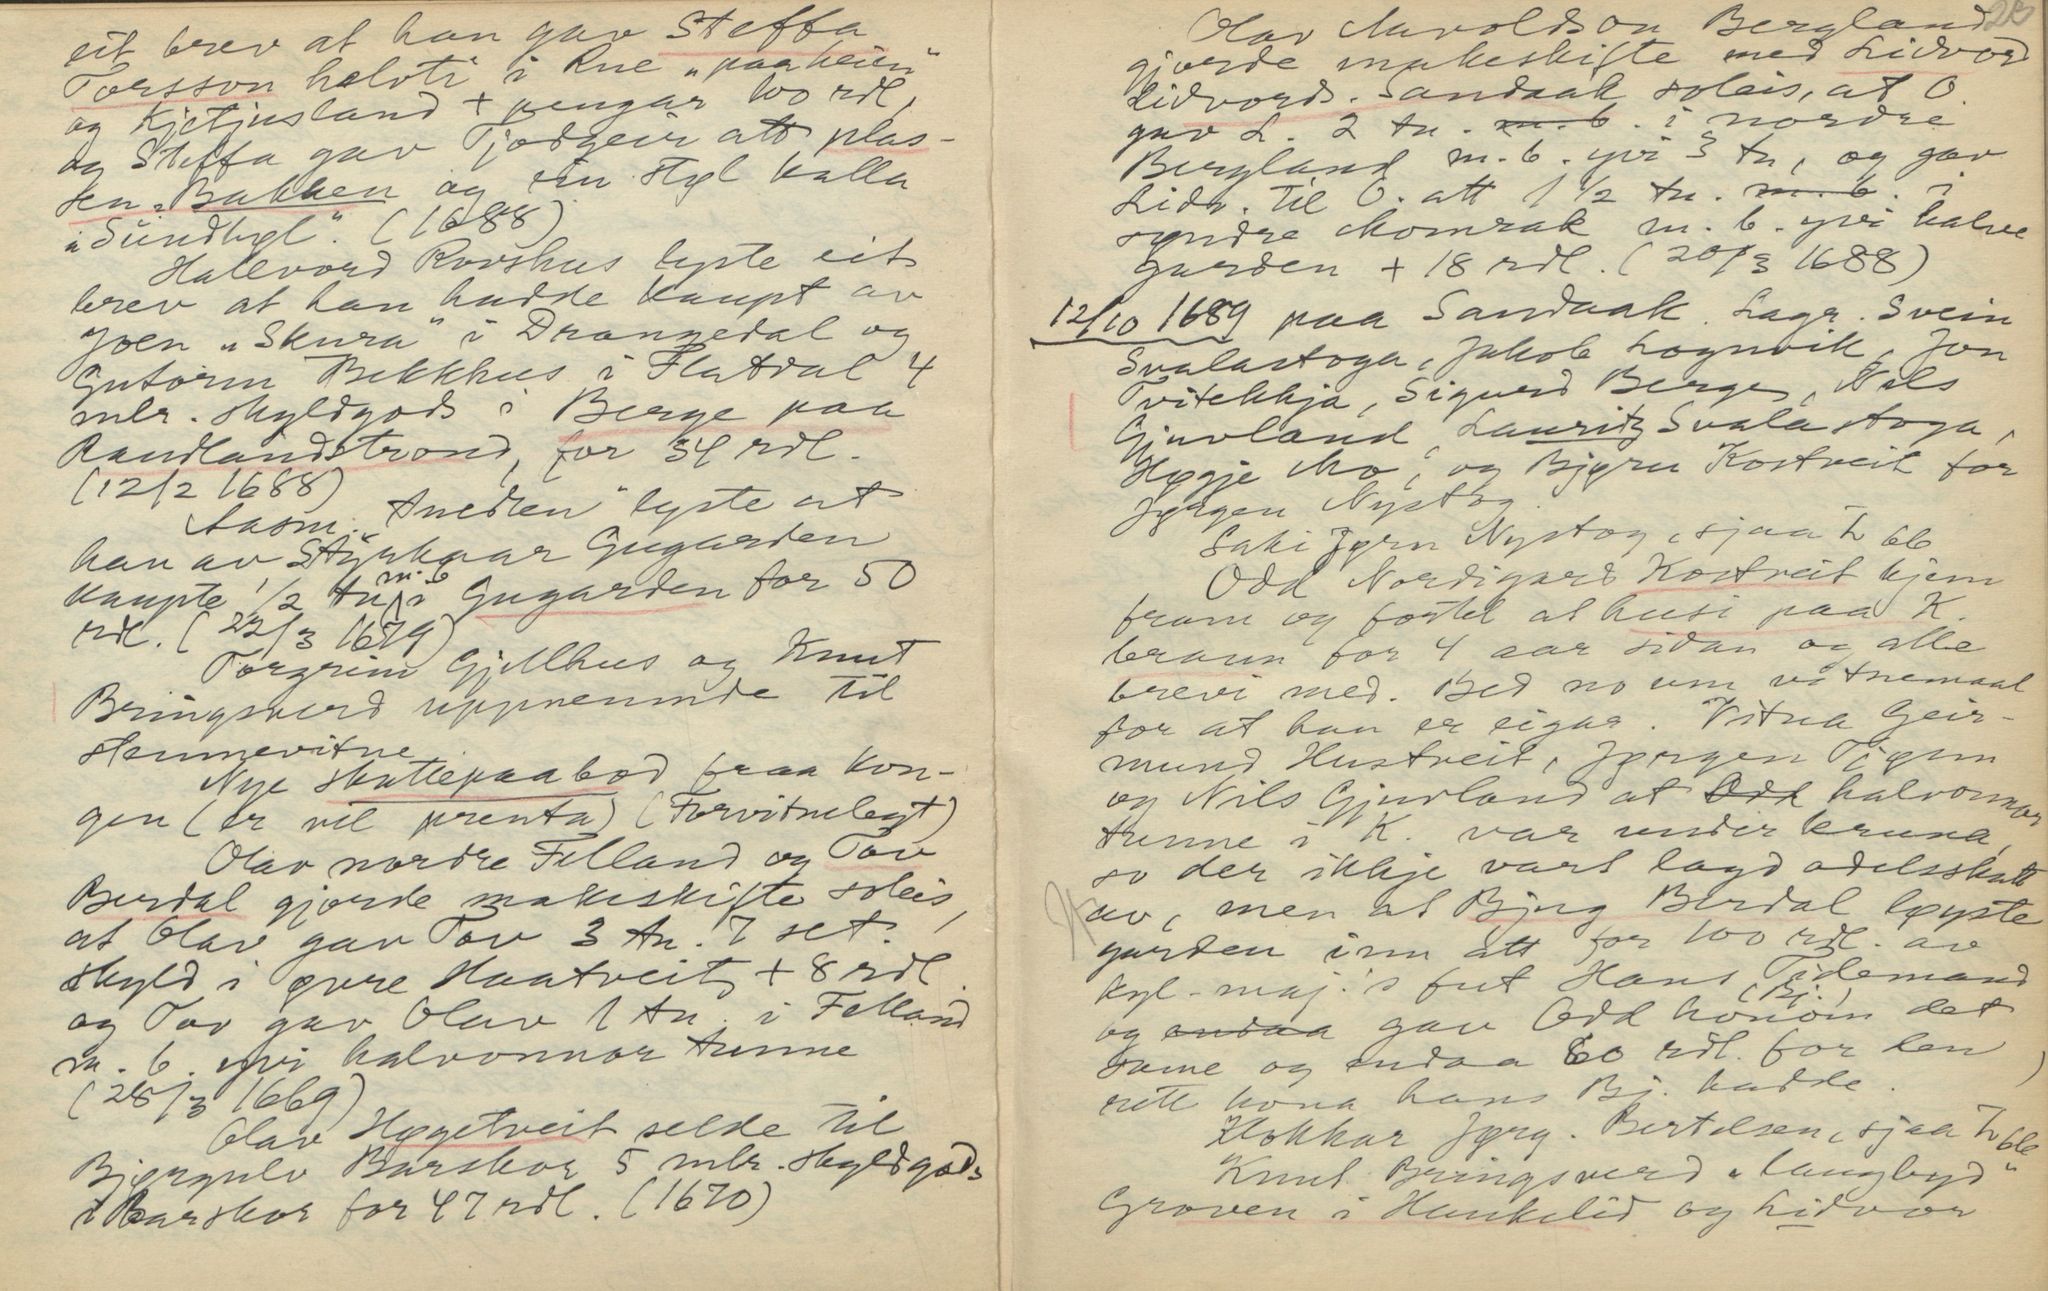 eit brev at han gav Steffa
Torsson halvti i Rue „paa heien"
og Kjetjusland + pengar 100 rdl,
og Steffa gav Tjodgeir att plas-
sen „Bakken og ein styl kalla
„Sundtyl". (1688)
Hallvord Rovshus lyste eit
brev at han hadde kaupt av
Joen „Skura" i Drangedal og
Gutorm Bekkhus i Flatdal 4
mlr. skyldgods i Berge paa
Raudlandstrond, for 34 rdl.
(12/2 1688)
Aasm. „Sneden" lyste at
han av Styrkaar Gugarden
kaupte 1/2 tn m. b. i Gugarden for 50
rdl. (22/3 1679)
Torgrim Gjellhus og Knut
Bringsverd uppnemnde til
stemnevitne.
Nye skattepaabod fraa kon-
gen (er vel prenta) (Forvitnelegt)
Olav nordre Felland og Tov
Berdal gjorde makeskifte soleis,
at Olav gav Tov 3 tn. 7 set.
skyld i øvre Haatveit + 8 rdl.
og Tov gav Olav 1 tn. i Felland
m. b. yvi halvonnor tunne
(28/3 1669)
Olav Høgetveit selde til
Bjørgulv Barskor 5 mlr. skyldgods
i Barskor for 47 rdl. (1670)
Olav Aavoldson Bergland
gjorde makeskifte med Lidvord
Lidvords. Sandaak soleis, at O.
gav L. 2 tn. m. b. i nordre
Bergland m. b. yvi 3 tn, og gav
Lidv. til O. att 1 1/2 tn. m. b. i
syndre Momrak m. b. yvi halve
garden + 18 rdl. (20/3 1688)
12/10 1689 paa Sandaak. Lagr. Svein
Svalastoga, Jakob Lognvik, Jon
Tvitekkja, Sigurd Berge, Nils
Gjuvland, Lauritz Svalastoga,
Høgje Mo, og Bjørn Kostveit for
Jørgen Nystog.
Saki Jørn Nystog, sjaa L 66
Odd Nordigard Kostveit kjem
fram og fortel at husi paa K.
brann for 4 aar sidan og alle
brevi med. Bed no um vitnemaal
for at han er eigar. Vitna Geir-
mund Hustveit, Jørgen Tjønn
og Nils Gjuvland at Odd halvonnor
tunne i K. var under kruna,
so der ikkje vart lagd odelsskatt
av, men at Bjug Berdal løyste
garden inn att for 100 rdl. av
kgl. maj.'s fut Hans Tidemand
og endaa gav Odd honom (Bj.) det
same og endaa 60 rdl. for den
rett kona hans Bj. hadde.
Klokkar Jørg. Bertelsen, sjaa L 66
Knut Bringsverd „laugbyd"
Groven i Haukelid og Lidvor